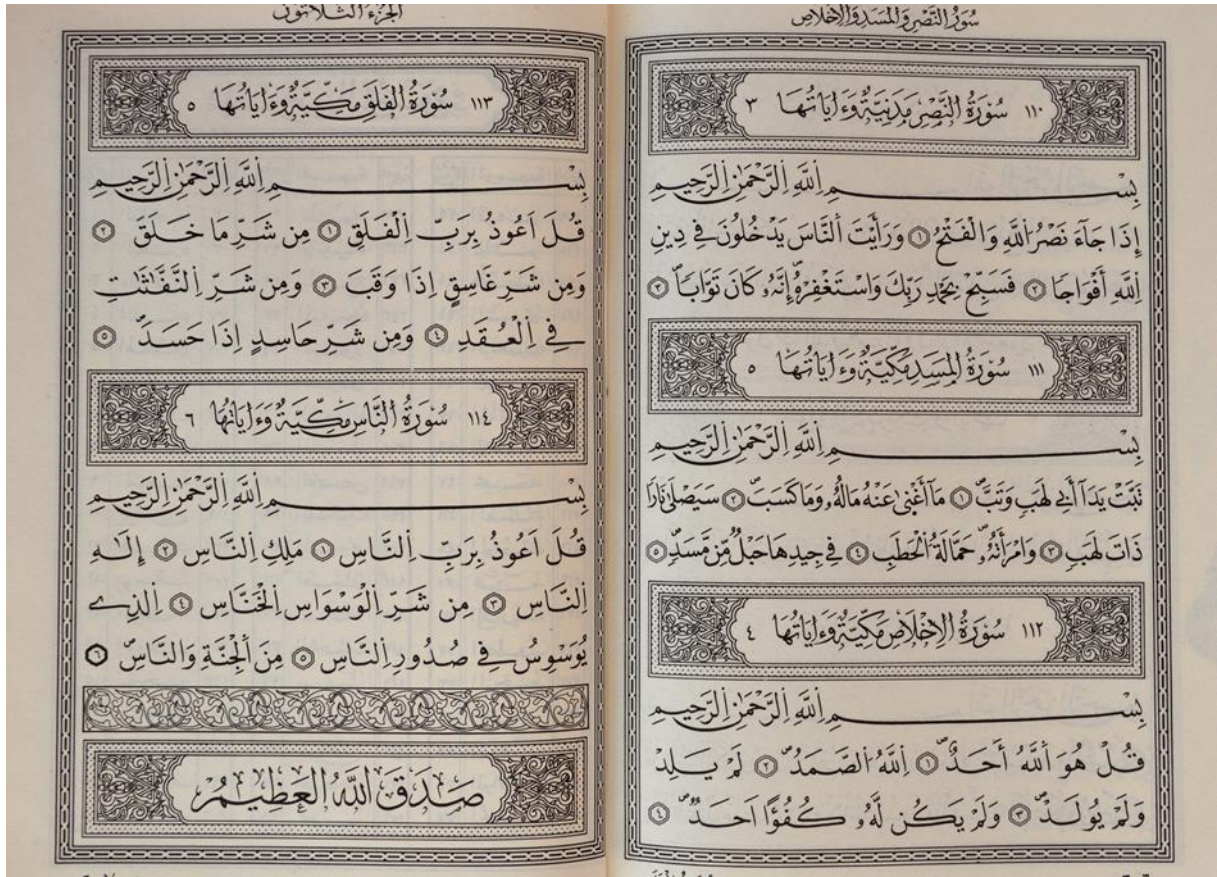 سُورَةُ النَّصْرِ وَالْمَسَدِ وَالْإِخْلَاصِ
١١٠ سُورَةُ النَّصْرِ مَدَنِيَّةٌ وَءَايَاتُهَا ٣
بِسْمِ اِللَّهِ اِلرَّحْمَٰنِ اِلرَّحِيمِ
إِذَا جَآءَ نَصْرُ اُللَّهِ وَالْفَتْحُ ١ وَرَأَيْتَ اَلنَّاسَ يَدْخُلُونَ فِے دِينِ
اِللَّهِ أَفْوَاجاٗ ٢ فَسَبِّحْ بِحَمْدِ رَبِّكَ وَاسْتَغْفِرْهُۖ إِنَّهُۥ كَانَ تَوَّاباَۢۖ ٣
١١١ سُورَةُ الْمَسَدِ مَكِّيَّةٌ وَءَايَاتُهَا ٥
بِسْمِ اِللَّهِ اِلرَّحْمَٰنِ اِلرَّحِيمِ
تَبَّتْ يَدَآ أَبِے لَهَبٖ وَتَبَّۖ ١ مَآ أَغْنَىٰ عَنْهُ مَالُهُۥ وَمَا كَسَبَۖ ٢ سَيَصْلَىٰ نَاراٗ
ذَاتَ لَهَبٖ ٣ وَامْرَأَتُهُۥۖ حَمَّالَةُ اُلْحَطَبِ ٤ فِے جِيدِهَا حَبْلٞ مِّن مَّسَدٖۖ ٥
١١٢ سُورَةُ الْإِخْلَاصِ مَكِّيَّةٌ وَءَايَاتُهَا ٤
بِسْمِ اِللَّهِ اِلرَّحْمَٰنِ اِلرَّحِيمِ
قُلْ هُوَ اَللَّهُ أَحَدٌۖ ١ اِللَّهُ اُلصَّمَدُۖ ٢ لَمْ يَلِدْ
وَلَمْ يُولَدْۖ ٣ وَلَمْ يَكُن لَّهُۥ كُفُؤاً اَحَدٌۖ ٤
الجُزْءُ الثَّلَاثُونَ
١١٣ سُورَةُ الْفَلَقِ مَكِّيَّةٌ وَءَايَاتُهَا ٥
بِسْمِ اِللَّهِ اِلرَّحْمَٰنِ اِلرَّحِيمِ
قُلَ اَعُوذُ بِرَبِّ اِلْفَلَقِ ١ مِن شَرِّ مَا خَلَقَ ٢
وَمِن شَرِّ غَاسِقٍ اِذَا وَقَبَ ٣ وَمِن شَرِّ اِلنَّفَّٰثَٰتِ
فِے اِلْعُقَدِ ٤ وَمِن شَرِّ حَاسِدٍ اِذَا حَسَدَۖ ٥
١١٤ سُورَةُ النَّاسِ مَكِّيَّةٌ وَءَايَاتُهَا ٦
بِسْمِ اِللَّهِ اِلرَّحْمَٰنِ اِلرَّحِيمِ
قُلَ اَعُوذُ بِرَبِّ اِلنَّاسِ ١ مَلِكِ اِلنَّاسِ ٢ إِلَٰهِ
اِلنَّاسِ ٣ مِن شَرِّ اِلْوَسْوَاسِ اِلْخَنَّاسِ ٤ اِلذِے
يُوَسْوِسُ فِے صُدُورِ اِلنَّاسِ ٥ مِنَ اَلْجِنَّةِ وَالنَّاسِۖ ٦
صَدَقَ اللَّهُ الْعَظِيمُ